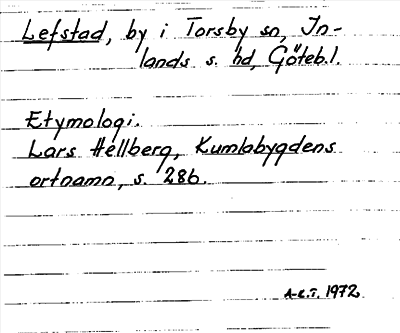 Lefstad, by i Torsby sn, In-
lands s. hd, Göteb. l.
Etymologi.
Lars Hellberg, Kumlabygdens
ortnamn, s. 286.
A-C.T. 1972